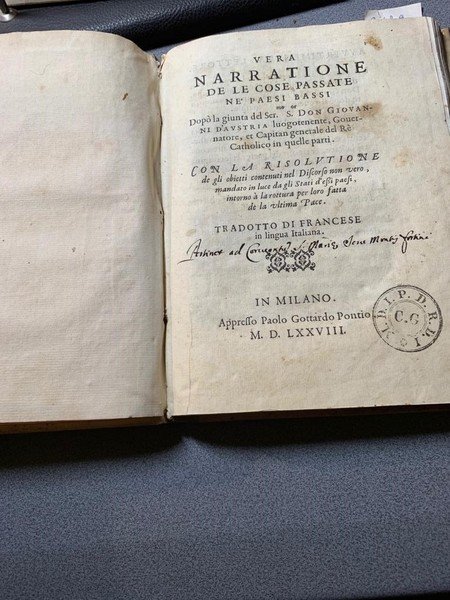 VERA
NARRATIONE
DE LE COSE PASSATE
NE' PAESI BASSI
Dopò la giunta del Ser. S. DON GIOVAN-
NI D'AVSTRIA luogotenente, Gouer-
natore, et Capitan generale del Rè
Catholico in quelle parti.
CON LA RISOLVTIONE
de gli obietti contenuti nel Discorso non vero,
mandato in luce da gli Stati d'essi paesi,
intorno à la rottura per loro fatta
de la vltima Pace.
TRADOTTO DI FRANCESE
in lingua Italiana.
Pertinet ad Conuentum S. Mariæ Montis fortini
IN MILANO.
Appresso Paolo Gottardo Pontio
M. D. LXXVIII.
M.D.I.P.D.R.L.I
C.G